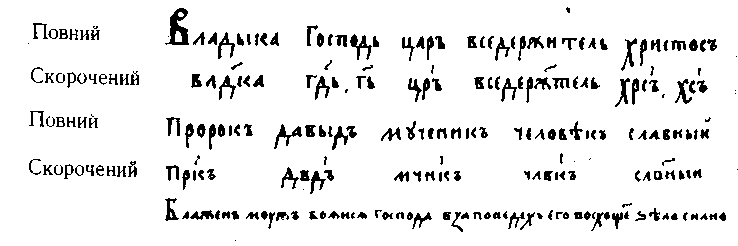 Повний Владыка Господь царъ вседержитель христосъ
Скорочений влдка гдь, гь црь вседержтель хрсъ, хсъ
Повний Пророкъ давыдъ мученикъ человѣкъ славный
Скорочений пркъ двдъ мчнкъ члвкъ слвный
Блаженъ мужъ бояися господа в заповедехъ его восхощет ѕѣло силно